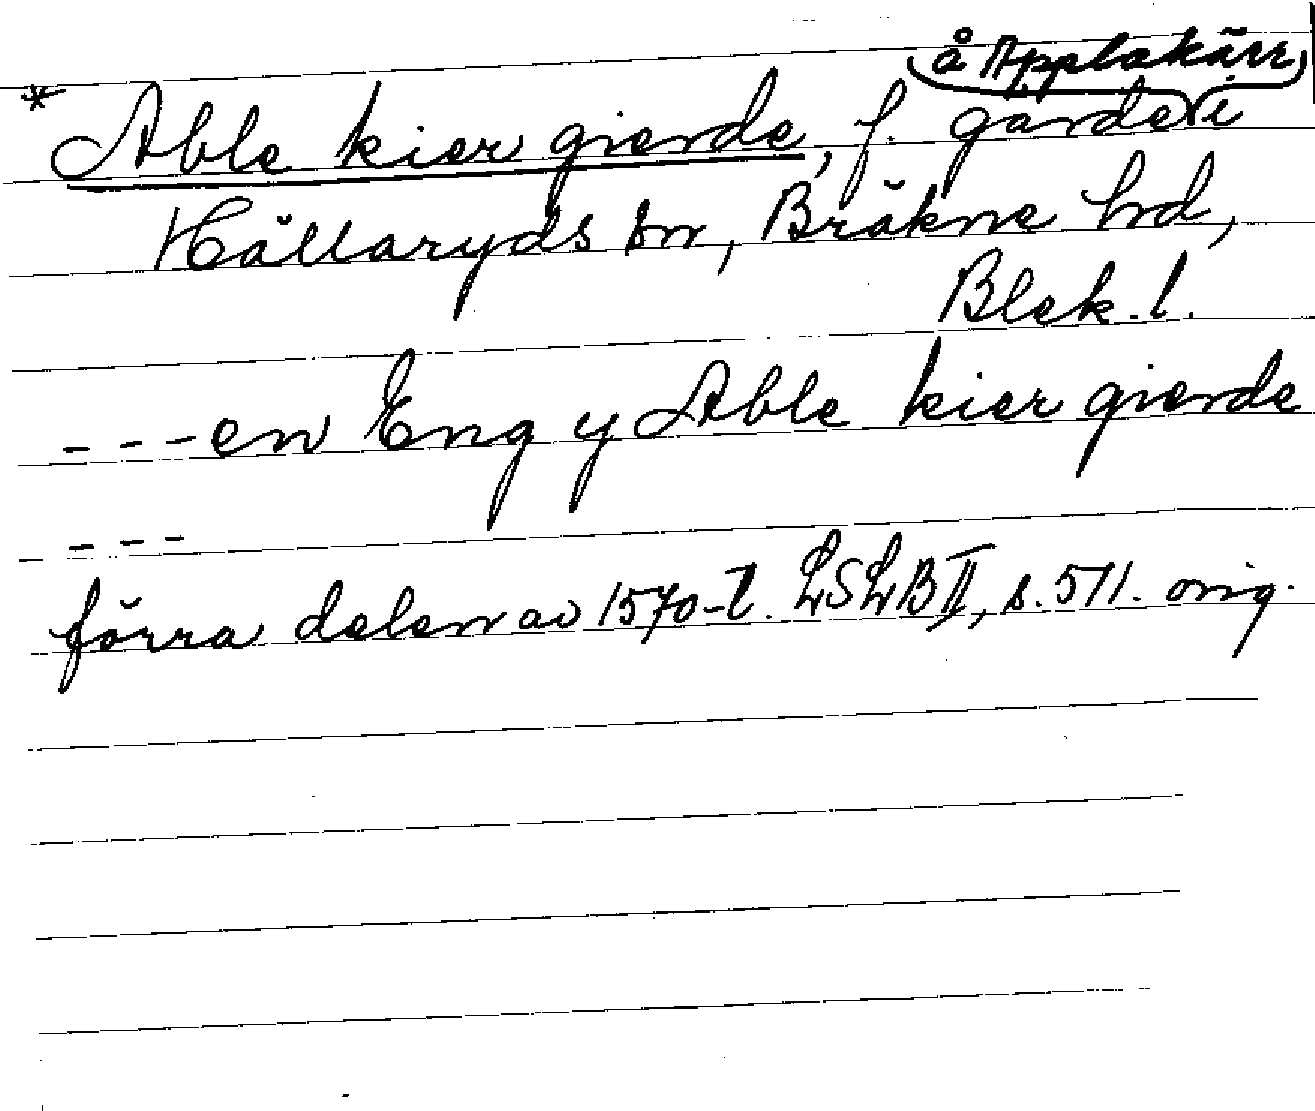 å Applakärr
* Able kier gierde, f. gärde i
Hällaryds sn, Bräkne hrd,
Blek. l.
---en Eng y Able kier gierde
---
förra delen av 1570-t. LSLB II, s. 571. orig.